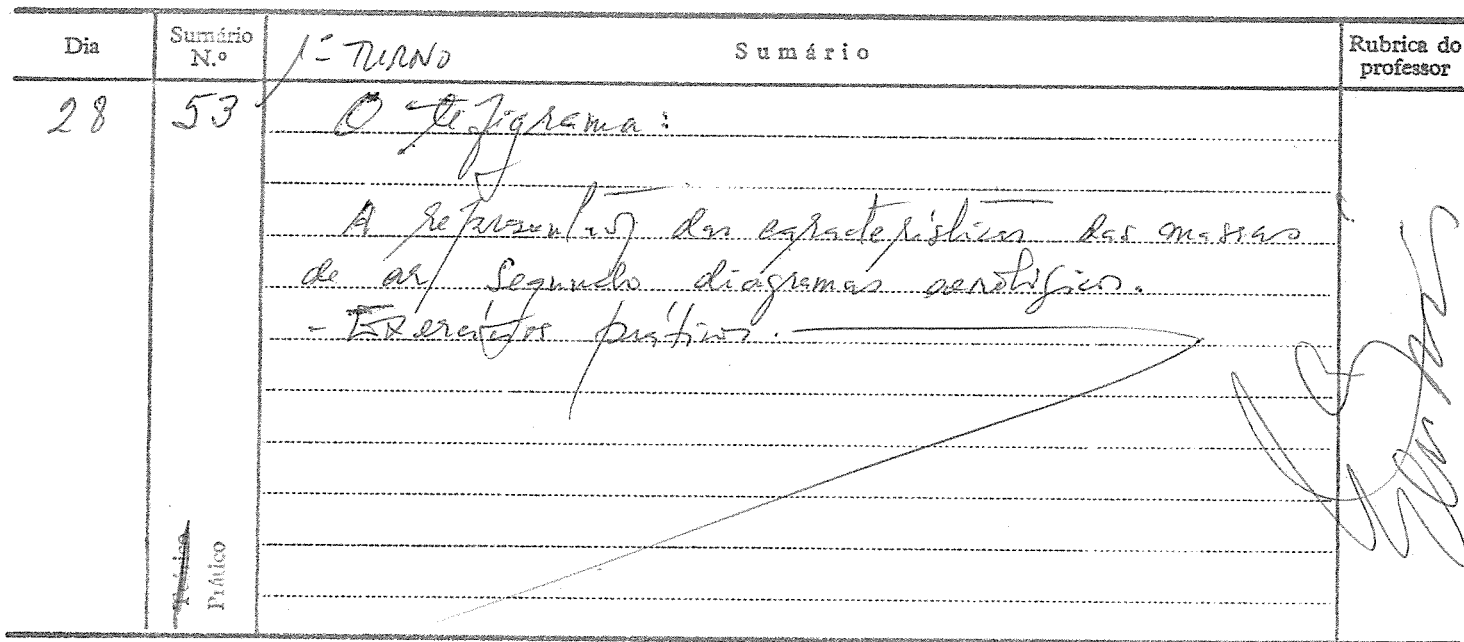 Dia Sumário N.º Sumário Rubrica do professor
1º TURNO
28 53 O tefigrama:
A representação das características das massas
de ar segundo diagramas aerológicos.
- Exercícios práticos.
Teórico
Prático